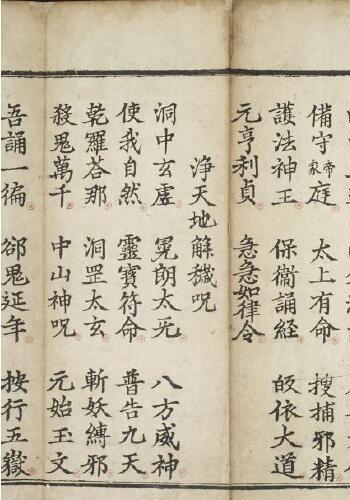 備守帝家庭　太上有命　搜捕邪精
護法神王　保衛誦経　皈依大道
元亨利貞　急急如律令
淨天地解穢呪
洞中玄虛　晃朗太旡　八方威神
使我自然　靈寶符命　普告九天
乾羅荅那　洞罡太玄　斬妖縛邪
殺鬼萬千　中山神呪　元始玉文
吾誦一徧　郤鬼延年　按行五嶽